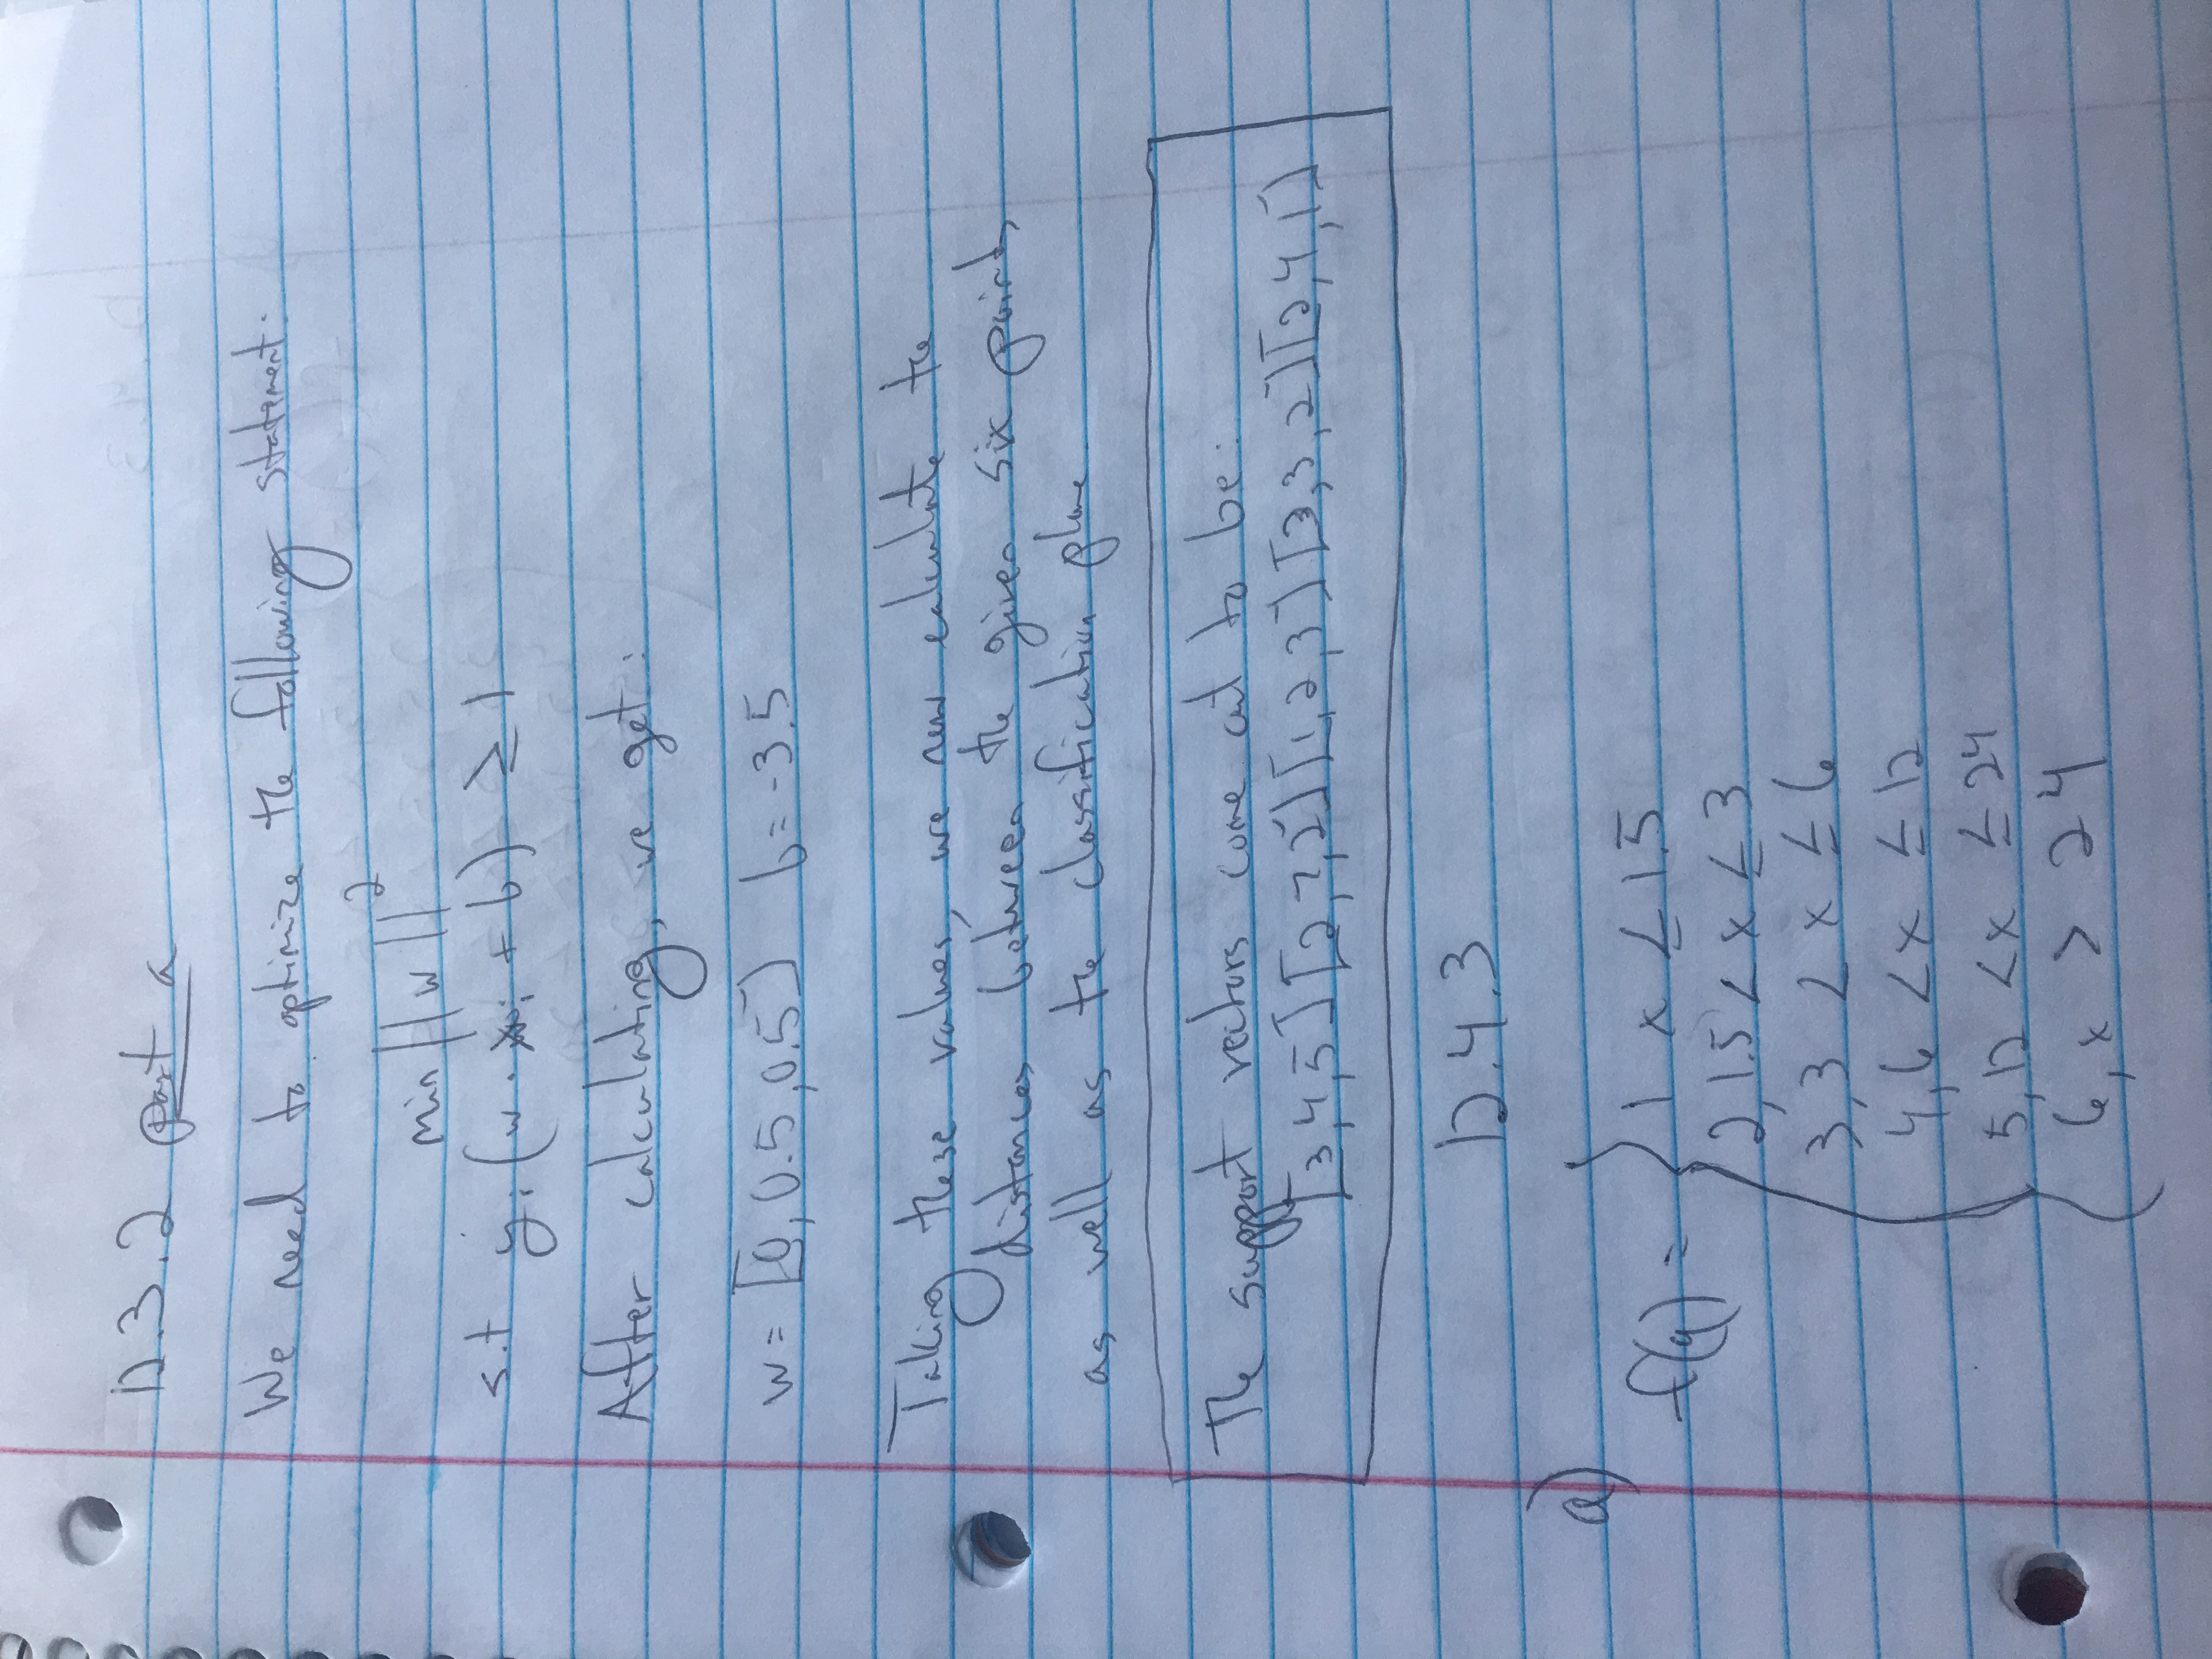 12.3.2 part a
We need to optimize the following statement:
min ||w||²
s.t yᵢ (w · xᵢ + b) ≥ 1
After calculating, we get:
w = [0, 0.5, 0.5] b = -3.5
Taking these values, we now calculate the
distances between the given six points
as well as the classification plane.
The support vectors come out to be:
[3,4,5] [2,7,2] [1,2,3] [3,3,2] [2,4,1]
12.4.3
a)
f(q) = { 1 x ≤ 1.5
2, 1.5 < x ≤ 3
3, 3 < x ≤ 6
4, 6 < x ≤ 12
5, 12 < x ≤ 24
6, x > 24